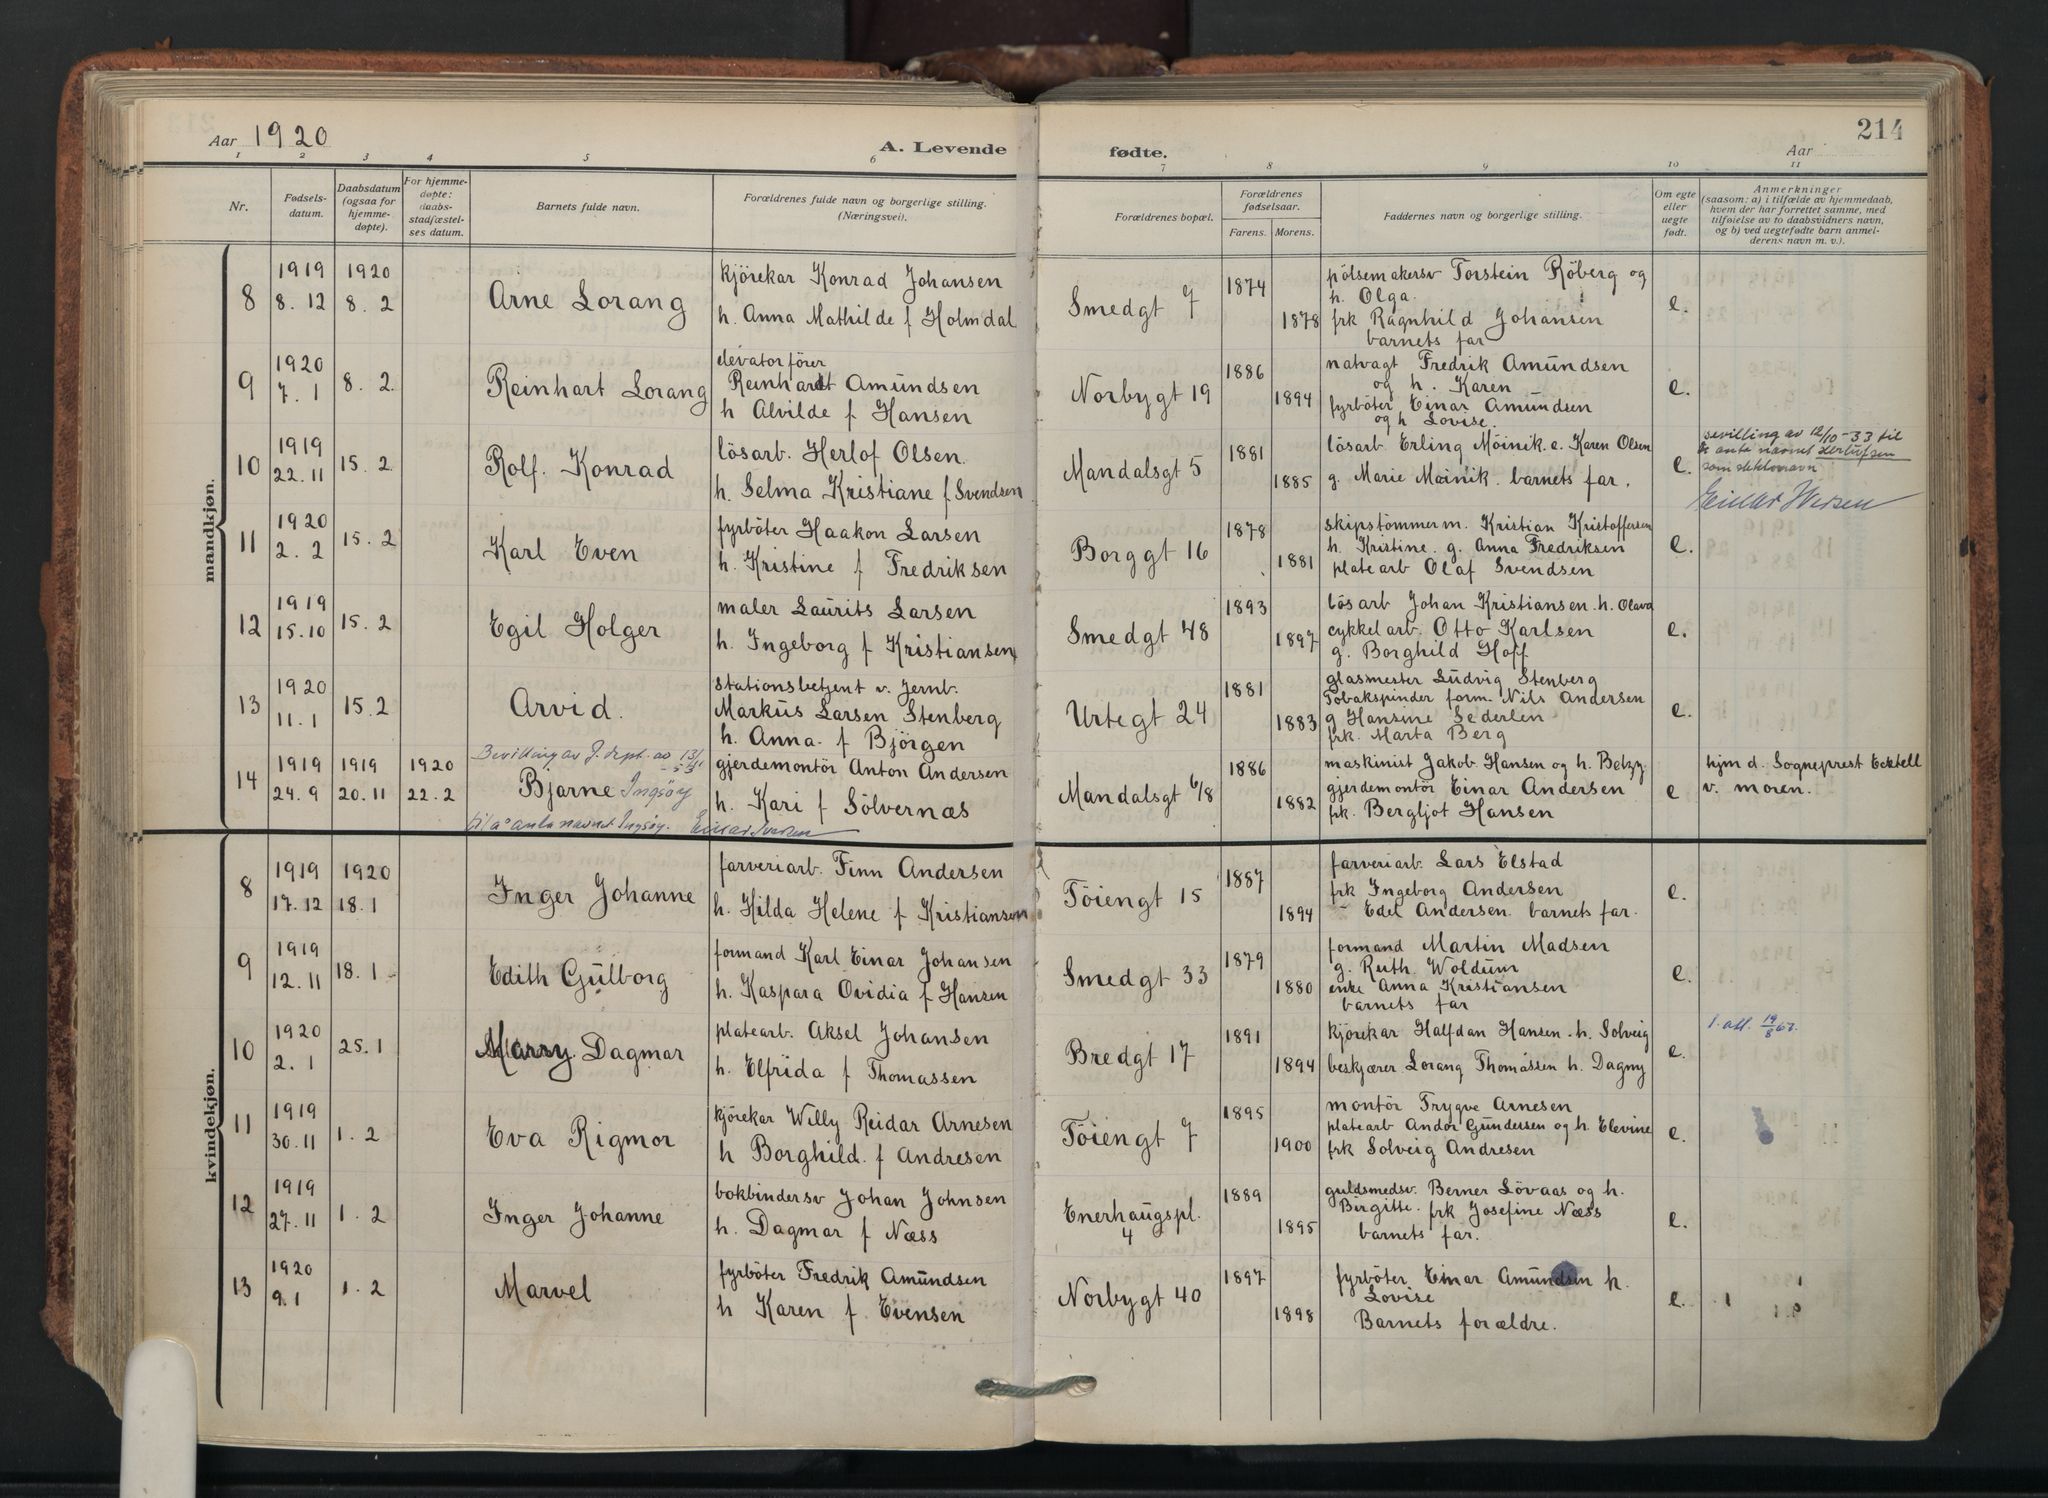 Aar 1920
A. Levende fødte.
214
Aar
1 2 3 4 5 6 7 8 9 10 11
Nr.
Fødsels-
datum.
Daabsdatum
(ogsaa for
hjemme-
døpte).
For hjemme-
døpte:
daabs-
stadfæstel-
ses datum.
Barnets fulde navn.
Forældrenes fulde navn og borgerlige stilling.
(Næringsvei).
Forældrenes bopæl.
Forældrenes
fødselsaar.
Farens. Morens.
Faddernes navn og borgerlige stilling.
Om egte
eller
uegte
født.
Anmerkninger
(saasom: a) i tilfælde av hjemmedaab,
hvem der har forrettet samme, med
tilføielse av to daabsvidners navn,
og b) ved uegtefødte barn anmel-
derens navn m. v.).
mandkjøn.
8
1919
8. 12
1920
8. 2
Arne Lorang
kjörekar Konrad Johansen
h. Anna Mathilde f Holmdal
Smedgt 7
1874
1878
pölsemakersv Torstein Röberg og
h. Olga.
frk Ragnhild Johansen
barnets far
e.
9
1920
7. 1
8. 2
Reinhart Lorang
elevatorförer
Reinhardt Amundsen
h Alvilde f Hansen
Norbygt 19
1886
1894
natvagt Fredrik Amundsen
og h. Karen
fyrböter Einar Amundsen
og h Lovise.
e.
10
1919
22. 11
15. 2
Rolf. Konrad
lösarb. Herlof Olsen.
h. Selma Kristiane f Svendsen
Mandalsgt 5
1881
1885
lösarb Erling Möinik. e. Karen Olsen
g. Marie Möinik. barnets far.
e.
bevilling av 12/10-33 til
å anta navnet Herlufsen
som slektsnavn
Einar Iversen
11
1920
2. 2
15. 2
Karl Even
fyrböter Haakon Larsen
h. Kristine f Fredriksen
Borggt 16
1878
1881
skipstömmerm. Kristian Kristoffersen
h. Kristine. g. Anna Fredriksen
platearb Olaf Svendsen
e.
12
1919
15. 10
15. 2
Egil Holger
maler Laurits Larsen
h. Ingeborg f Kristiansen
Smedgt 48
1893
1897
lösarb Johan Kristiansen. h. Olava
cykkelarb. Otto Karlsen
g. Borghild Hoff
e.
13
1920
11. 1
15. 2
Arvid.
stationsbetjent v. Jernb.
Markus Larsen Stenberg
h. Anna. f Björgen
Urtegt 24
1881
1883
glasmester Ludvig Stenberg
Tobakspinder form. Nils Andersen
g Hansine Sederlen
frk. Marta Berg
e.
14
1919
24. 9
1919
20. 11
1920
22. 2
Bevilling av J. dept. av 13/1
-53
Bjarne Ingsöy
til å anta navnet Ingsöy. Einar Iversen
gjerdemontör Anton Andersen
h. Kari f Sölvernæs
Mandalsgt 6/8
1886
1882
maskinist Jakob Hansen og h. Betzy.
gjerdemontör Einar Andersen
frk. Bergljot Hansen
e
hjm d. Sogneprest Ecktell
v. moren.
kvindekjøn.
8
1919
17. 12
1920
18. 1
Inger Johanne
farveriarb. Finn Andersen
h. Hilda Helene f Kristiansen
Töiengt 15
1887
1894
farveriarb. Lars Elstad
frk Ingeborg Andersen
- Edel Andersen. barnets far.
e.
9
1919
12. 11
18. 1
Edith Gulborg
formand Karl Einar Johansen
h. Kaspara Ovidia f Hansen
Smedgt 33
1879
1880
formand Martin Madsen
g. Ruth. Woldum
enke Anna Kristiansen
barnets far
e.
10
1920
2. 1
25. 1
Marry. Dagmar
platearb. Aksel Johansen
h. Elfrida f Thomassen
Bredgt 17
1891
1894
kjörekar Halfdan Hansen. h. Solveig
beskjærer Lorang Thomassen h. Dagny
e.
1. att. 19/8 67.
11
1919
30. 11
1. 2
Eva Rigmor
kjörekar Willy Reidar Arnesen
h Borghild. f Andresen
Töiengt 7
1895
1900
montör Trygve Arnesen
platearb Andor Gundersen og h. Elevine
frk Solveig Andresen
e.
12
1919
27. 11
1. 2
Inger Johanne
bokbindersv Johan Johnsen
h. Dagmar f Næss
Enerhaugspl.
4
1889
1895
guldsmedsv. Berner Lövaas og h.
Birgitte. frk Josefine Næss
barnets far.
e.
13
1920
9. 1
1. 2
Marvel
fyrböter Fredrik Amundsen
h Karen f Evensen
Norbygt 40
1897
1898
fyrböter Einar Amundsen h.
Lovise
Barnets forældre.
e.